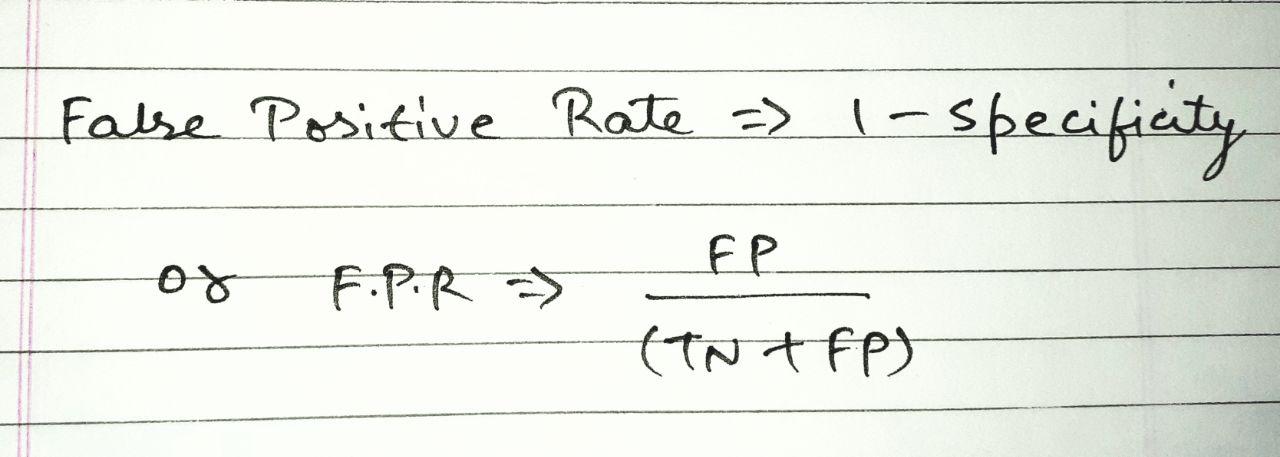 False Positive Rate => 1 - Specificity
or F.P.R => FP
(TN + FP)